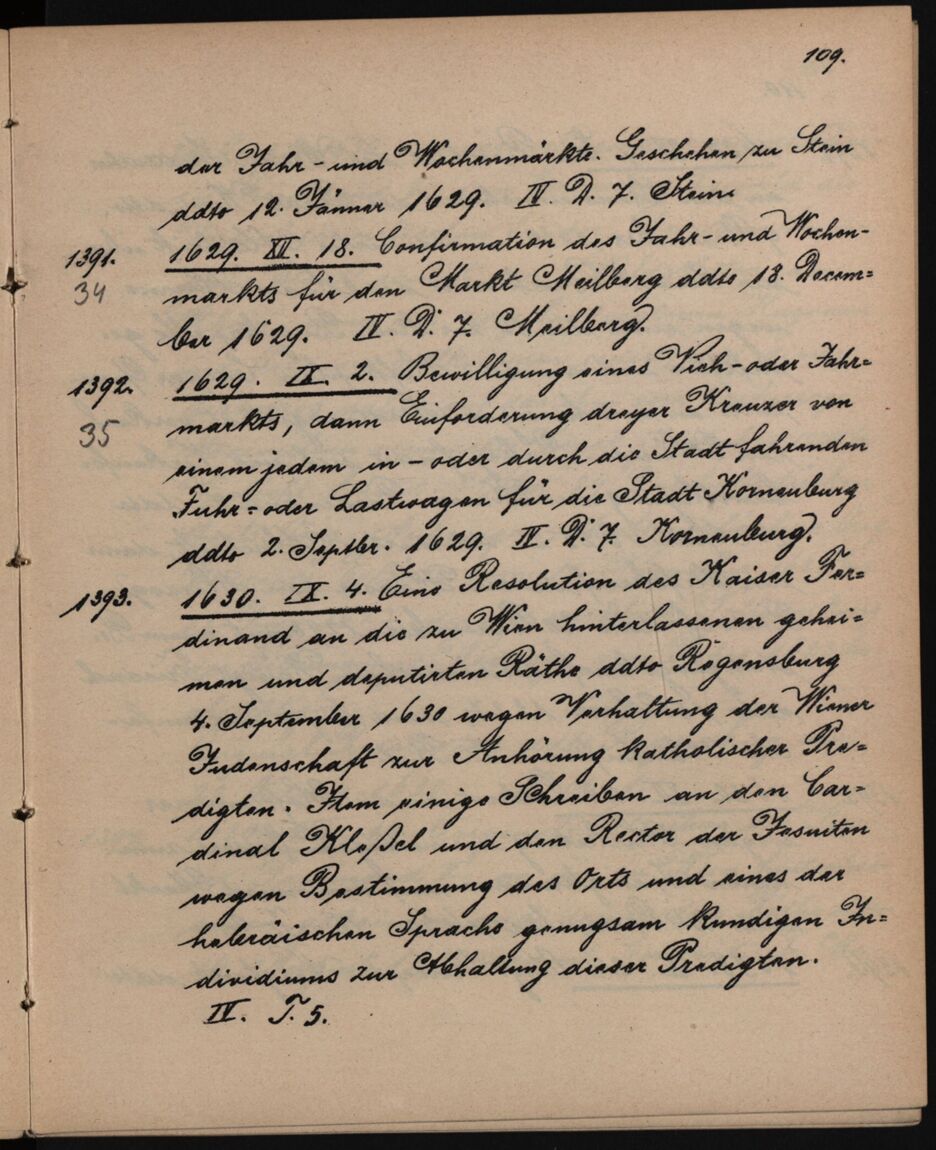 109.
der Jahr- und Wochenmärkte. Geschehen zu Stein
ddto 12. Jänner 1629. IV. D. 7. Stein.
1391. 1629. XII. 18. Confirmation des Jahr- und Wochen-
34 markts für den Markt Meilberg ddto 18. Decem=
ber 1629. IV. D. 7. Meilberg.
1392. 1629. IX. 2. Bewilligung eines Vieh- oder Jahr=
35 markts, dann Einforderung dreyer Kreuzer von
einem jedem in- oder durch die Stadt fahrenden
Fuhr= oder Lastwagen für die Stadt Korneuburg
ddto 2. Septbr. 1629. IV. D. 7. Korneuburg.
1393. 1630. IX. 4. Eine Resolution des Kaiser Fer=
dinand an die zu Wien hinterlassenen gehei=
men und deputirten Räthe ddto Regensburg
4. September 1630 wegen Verhaltung der Wiener
Judenschaft zur Anhörung katholischer Pre=
digten. Item einige Schreiben an den Car=
dinal Kleßel und den Rector der Jesuiten
wegen Bestimmung des Orts und eines der
hebräischen Sprache genugsam kundigen In=
dividiums zur Abhaltung dieser Predigten.
IV. T. 5.